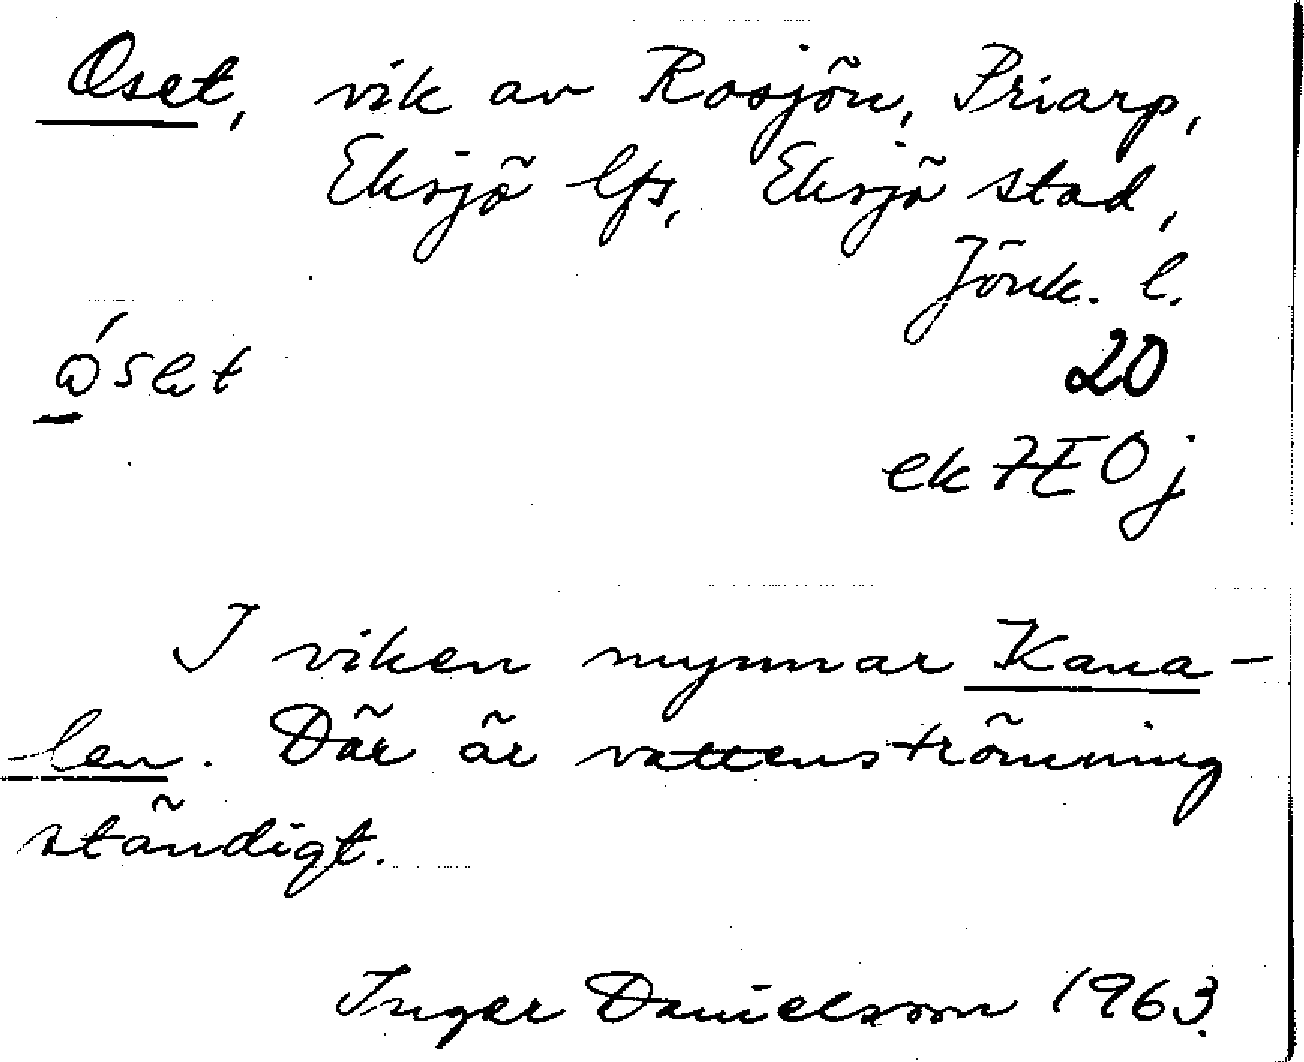 Oset, vik av Rosjön, Priarp,
Eksjö lfs, Eksjö stad,
Jönk. l.
20
ek 7E0j
I viken mynnar Kana-
len. Där är vattenströmning
ständigt.
Inger Danielsson 1963.